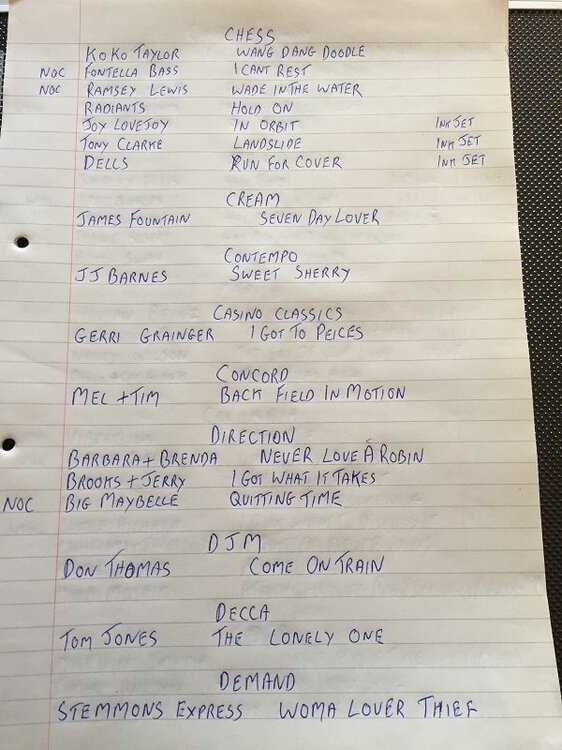 CHESS
KOKO TAYLOR WANG DANG DOODLE
NOC FONTELLA BASS I CANT REST
NOC RAMSEY LEWIS WADE IN THE WATER
RADIANTS HOLD ON
JOY LOVEJOY IN ORBIT INK JET
TONY CLARKE LANDSLIDE INK JET
DELLS RUN FOR COVER INK JET
CREAM
JAMES FOUNTAIN SEVEN DAY LOVER
CONTEMPO
JJ BARNES SWEET SHERRY
CASINO CLASSICS
GERRI GRAINGER I GOT TO PEICES
CONCORD
MEL + TIM BACK FIELD IN MOTION
DIRECTION
BARBARA + BRENDA NEVER LOVE A ROBIN
BROOKS + JERRY I GOT WHAT IT TAKES
NOC BIG MAYBELLE QUITTING TIME
DJM
DON THOMAS COME ON TRAIN
DECCA
TOM JONES THE LONELY ONE
DEMAND
STEMMONS EXPRESS WOMA LOVER THIEF